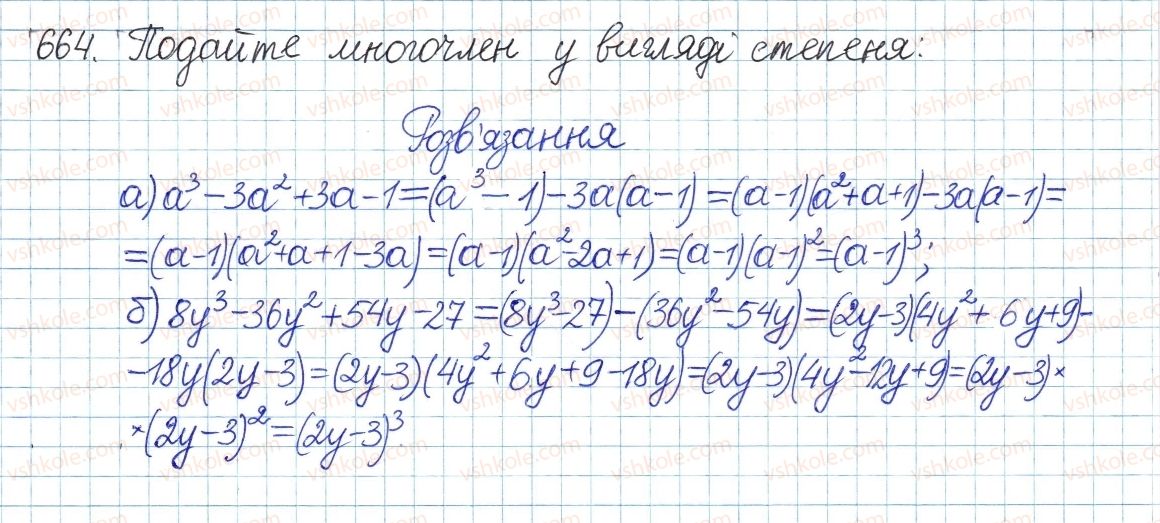 664. Подайте многочлен у вигляді степеня:
Розв'язання
а) a³ - 3a² + 3a - 1 = (a³ - 1) - 3a(a - 1) = (a-1)(a²+a+1) - 3a(a-1) =
= (a-1)(a²+a+1-3a) = (a-1)(a²-2a+1) = (a-1)(a-1)² = (a-1)³;
б) 8y³ - 36y² + 54y - 27 = (8y³-27) - (36y²-54y) = (2y-3)(4y² + 6y+9) -
- 18y(2y-3) = (2y-3)(4y² + 6y + 9 - 18y) = (2y-3)(4y²-12y+9) = (2y-3) ×
× (2y-3)² = (2y-3)³